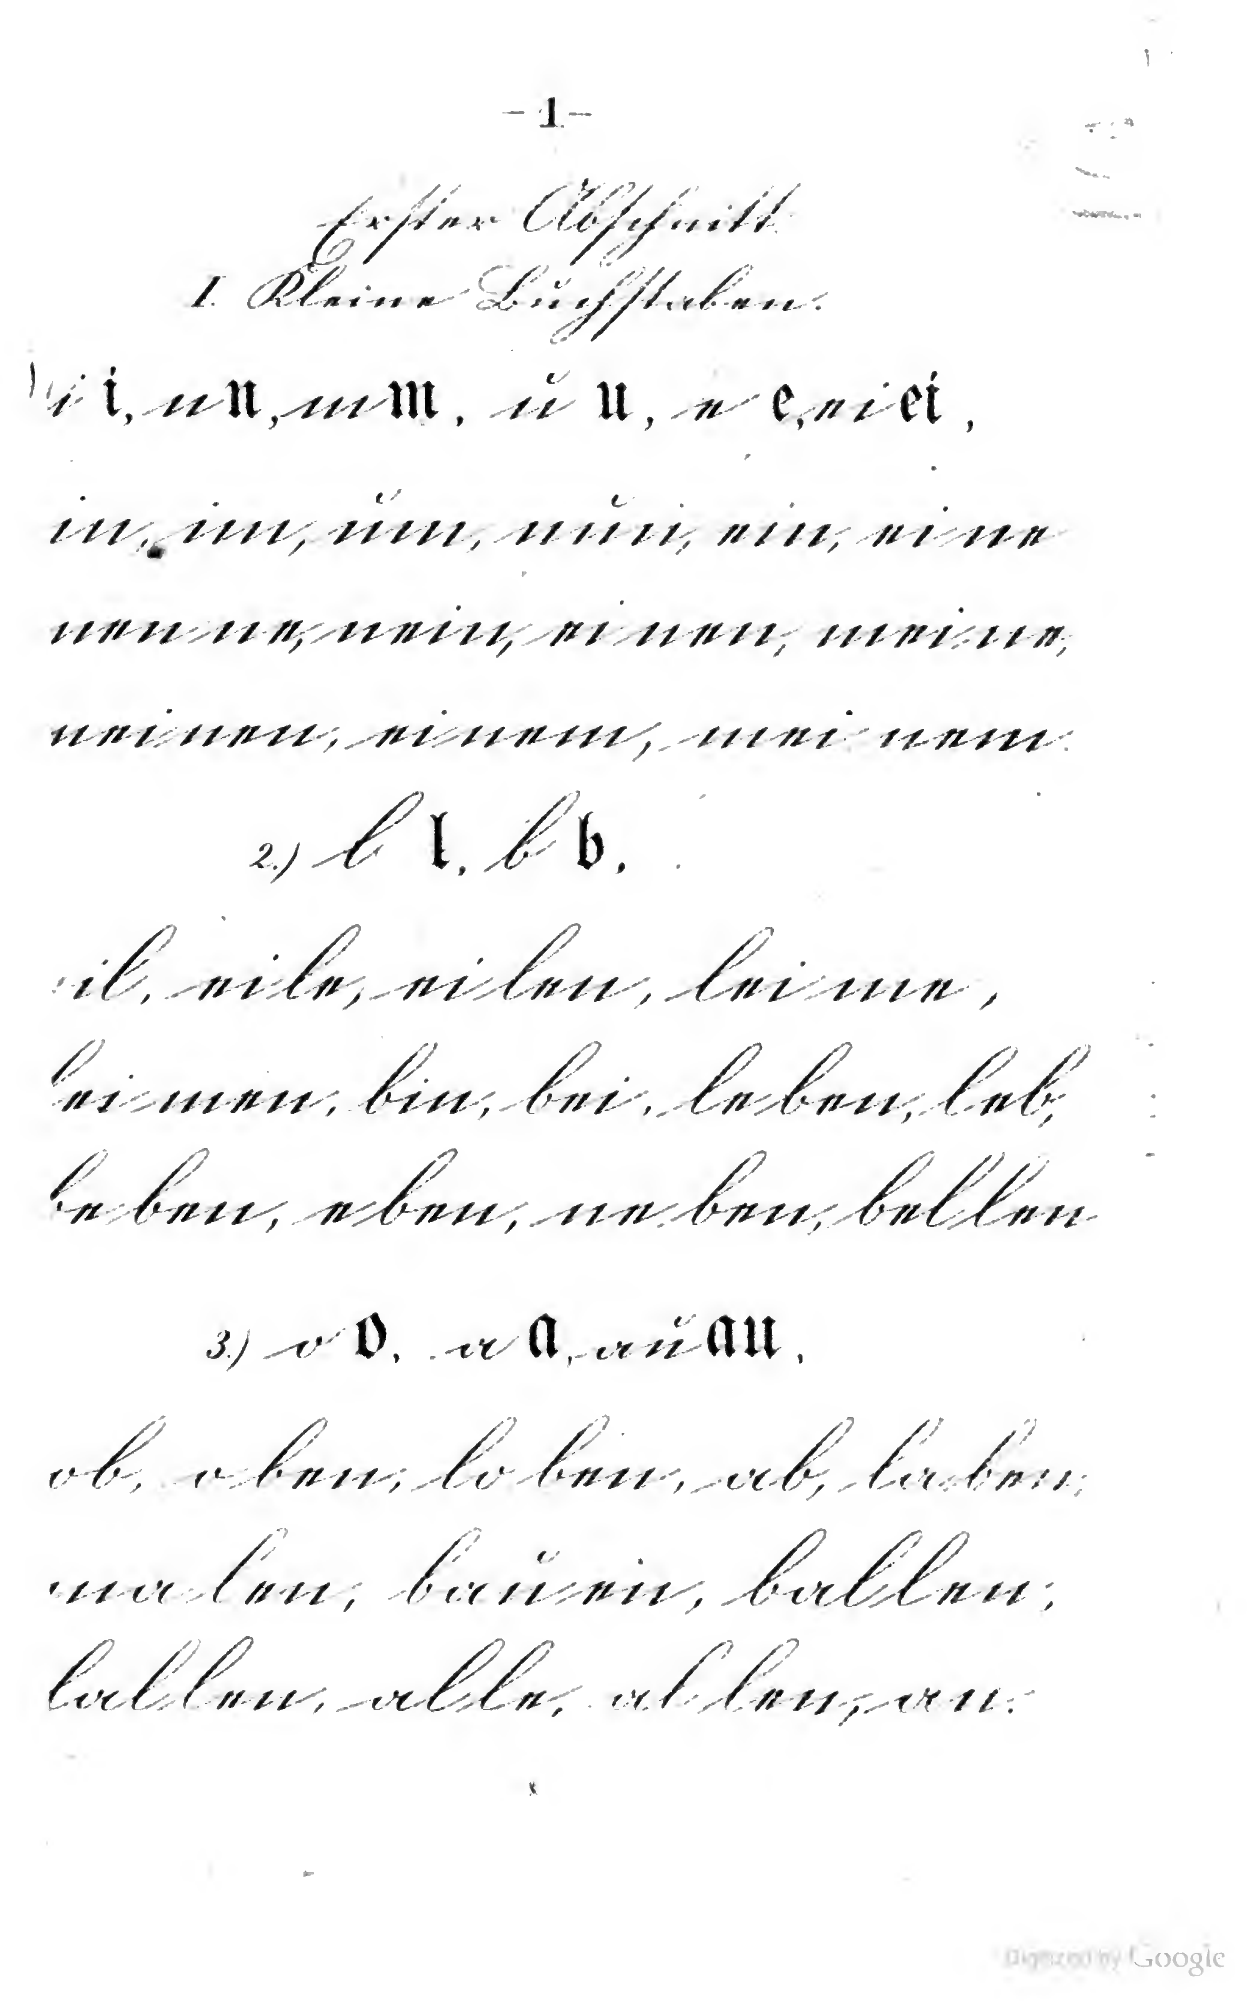 – 1. –
Erster Abschnitt.
I. Kleine Buchstaben.
1) i i, n n, m m, u u, e e, ei ei,
in, im, um, nun, ein, eine
nenne, nein, einen, meine,
neinen, einem, meinem.
2.) l l, b b,
eil, eile, eilen, leime,
leimen, bin, bei, leben, leb,
beben, eben, neben, bellen
3.) o o, a a, au au,
ob, oben, loben, ab, laben,
malen, bauen, ballen,
lallen, alle, allen, an.
Digitized by Google